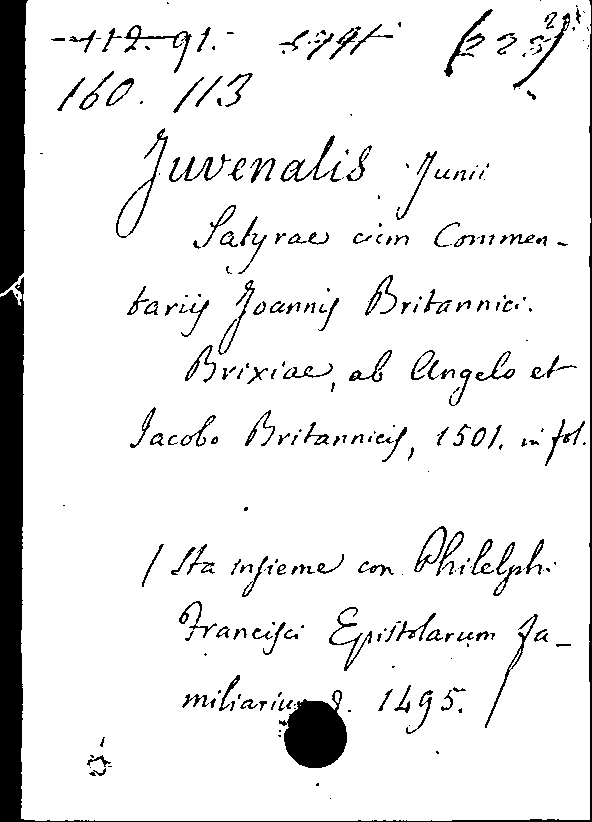 112. 91.
160. 113
Juvenalis Junii
Satyrae cum Commen-
tariis Joannis Britannici.
Brixiae, ab Angelo et
Iacobo Britannicis, 1501. in fol.
/ Sta insieme con Philelphi
Francisci Epistolarum fa-
miliarium 1495. /